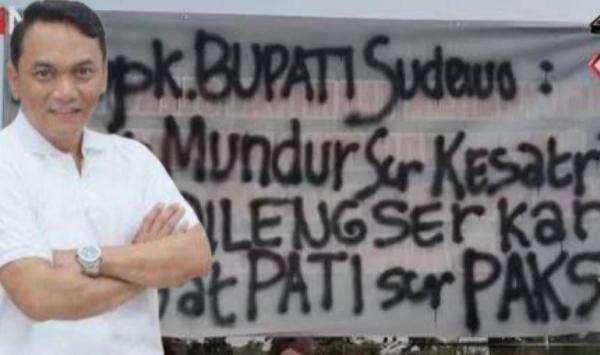 pk. BUPATI Sudewo :
Mundur Scr Kesatri
DILENGSER kan
at PATI scr PAKS